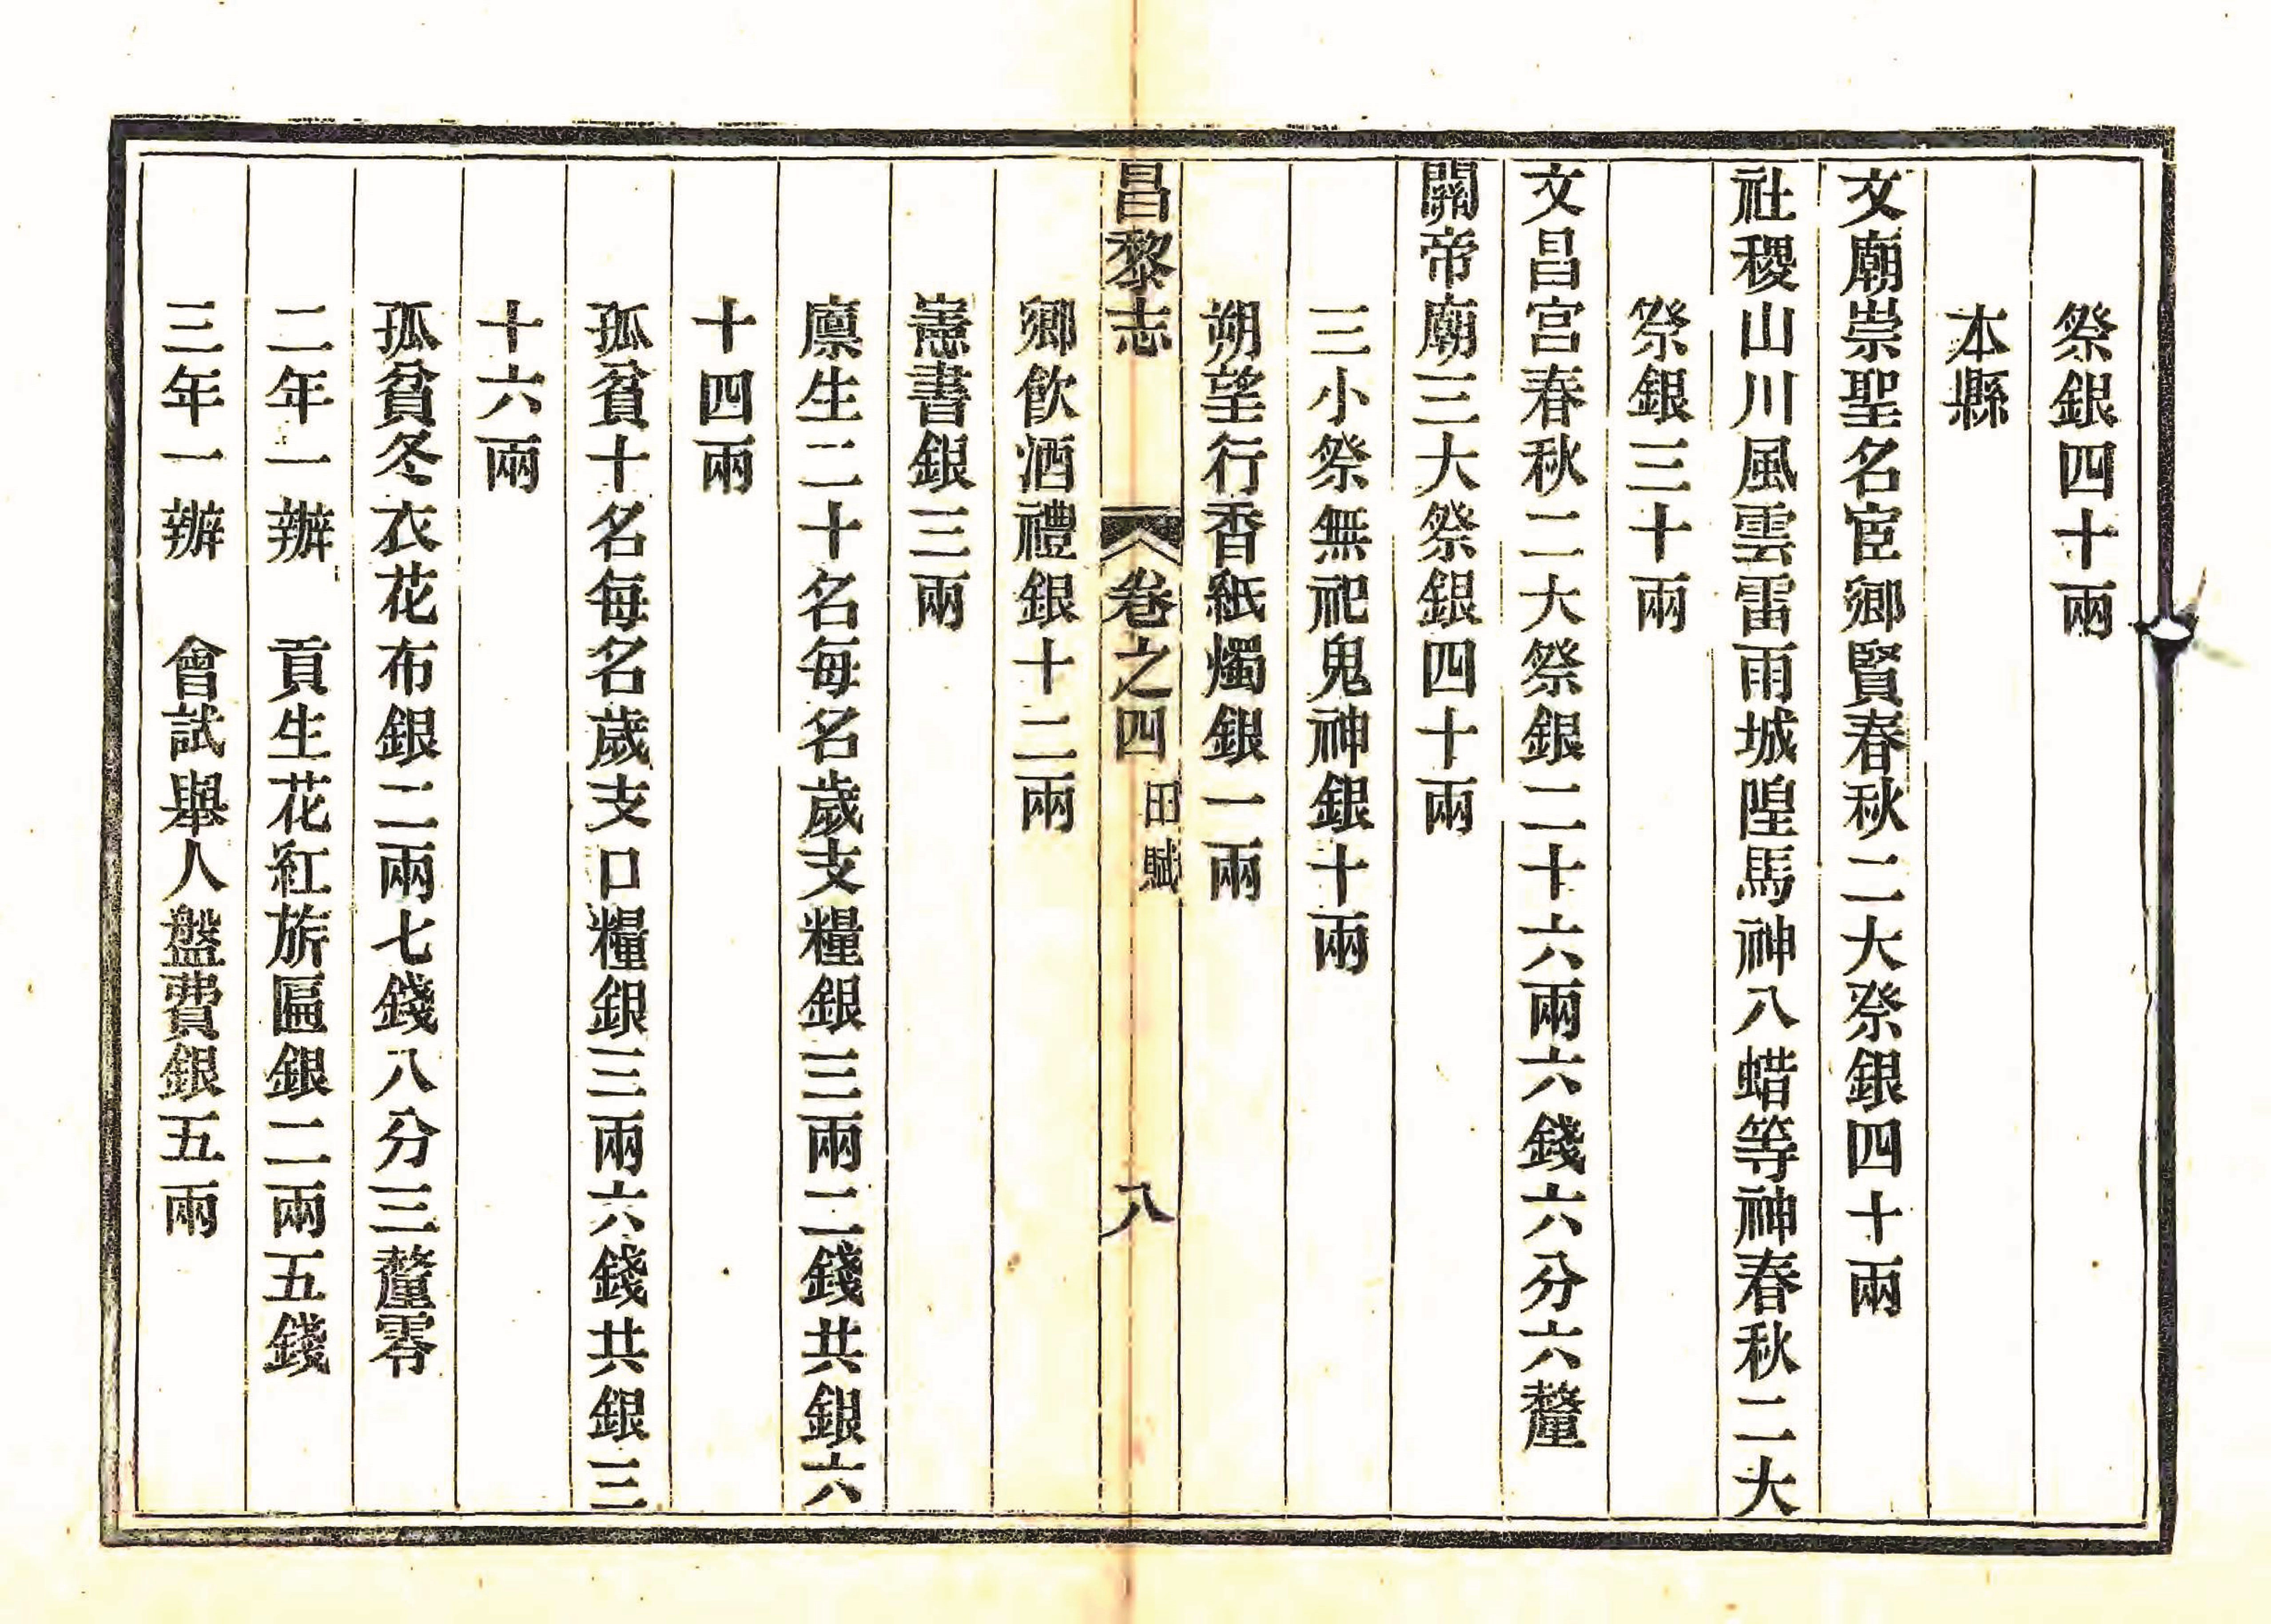 祭銀四十兩
本縣
文廟崇聖名宦鄉賢春秋二大祭銀四十兩
社稷山川風雲雷雨城隍馬神八蜡等神春秋二大
祭銀三十兩
文昌宮春秋二大祭銀二十六兩六錢六分六釐
關帝廟三大祭銀四十兩
三小祭無祀鬼神銀十兩
朔望行香紙燭銀一兩
昌黎志 卷之四 田賦 八
鄉飲酒禮銀十二兩
憲書銀三兩
廪生二十名每名歲支糧銀三兩二錢共銀六
十四兩
孤貧十名每名歲支口糧銀三兩六錢共銀三
十六兩
孤貧冬衣花布銀二兩七錢八分三釐零
二年一辦 貢生花紅旂匾銀二兩五錢
三年一辦 會試舉人盤費銀五兩